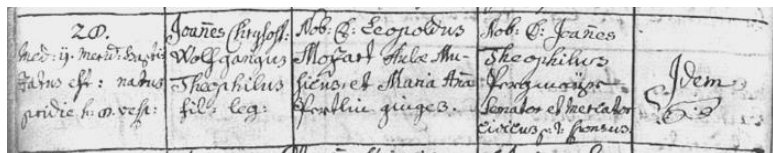 28.
med: ij. merid: baptiz
zatus est: natus
pridie h. 8. vesp:
Joan̄es Chrysost:
Wolfgangus
Theophilus
fil: leg:
Nob: D: Leopoldus
Mozart Aulæ Mu-
sicus, et Maria Ana
Pertlin giuges.
Nob: D: Joan̄es
Theophilus
Pergmayr
Senator et Mercator
civicus p: t: sponsus
Idem